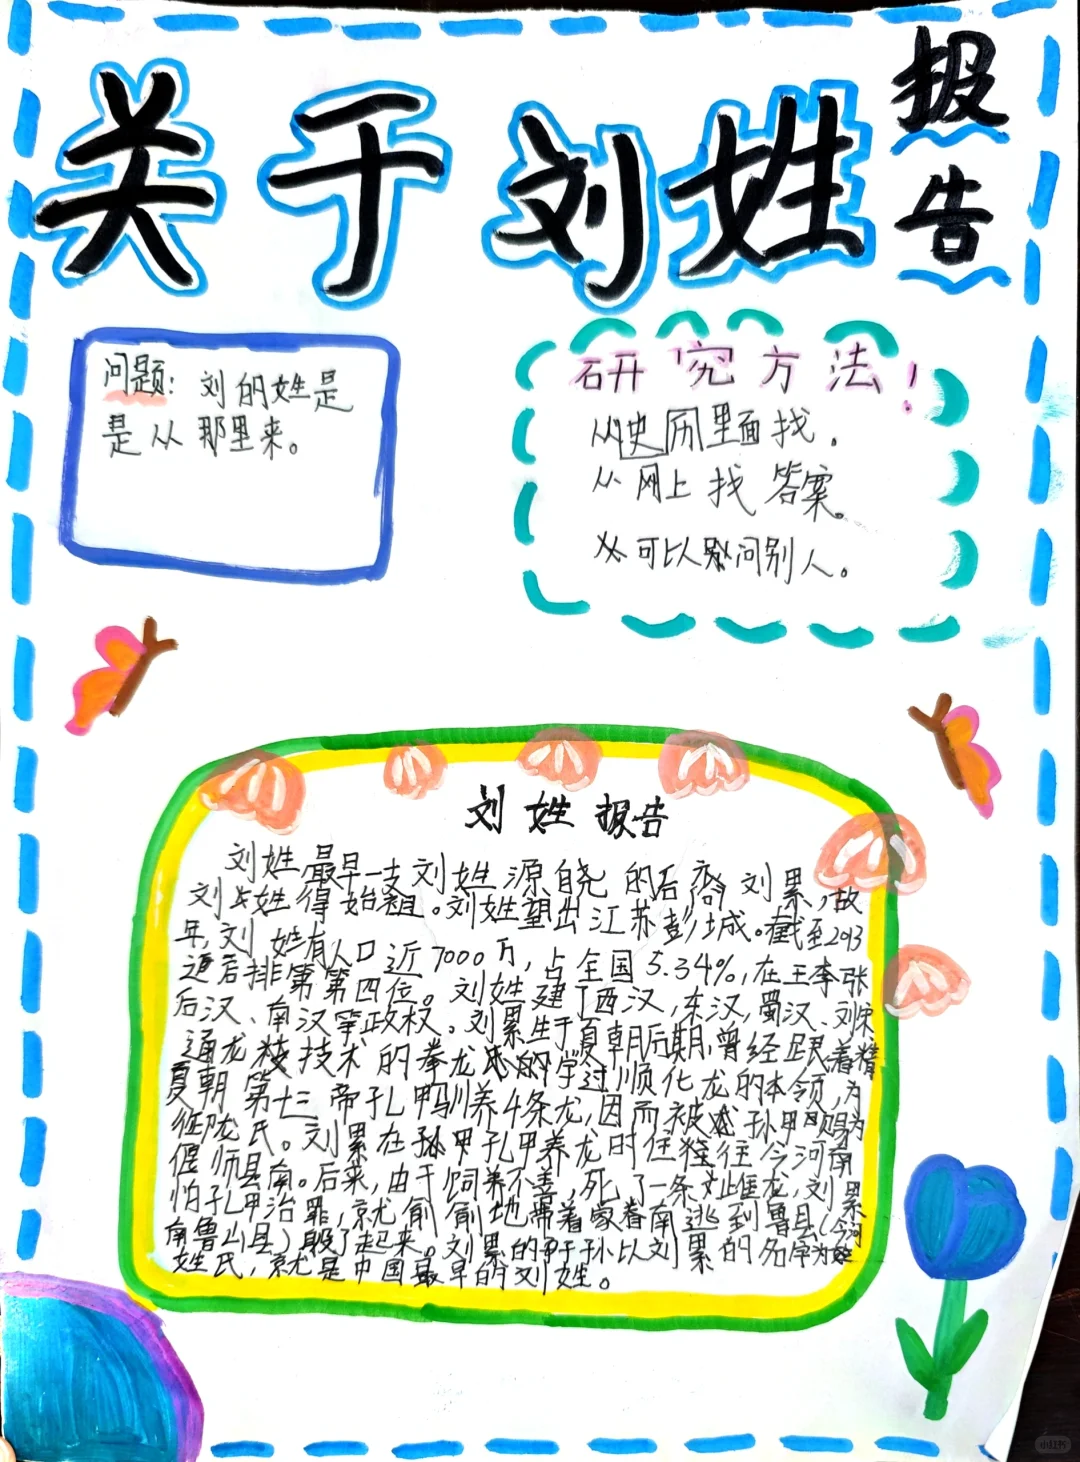 关于刘姓
报告
问题：刘的姓是
是从那里来。
研究方法！
从史历里面找。
从网上找答案。
从可以问别人。
刘姓报告
刘姓最早一支刘姓源自尧的后裔刘累，故
刘姓得始祖。刘姓望出江苏彭城。截至2013
年，刘姓有人口近7000万，占全国5.34%，在王李张
后排第第四位。刘姓建了西汉，东汉，蜀汉、刘宋
后汉、南汉等政权。刘累生于夏朝后期，曾经跟着精
通龙技技术的拳龙氏的学过顺化龙的本领，为
夏朝第十三帝孔甲驯养4条龙，因而被孙甲赐为
御龙氏。刘累在孙甲孔甲养龙时住往今河南
偃师县南。后来，由于饲养不善，死了一条雌龙，刘累
怕孔甲治罪，就偷偷地带着家眷南逃到鲁县（今河
南鲁山县）躲了起来。刘累的子孙以刘累的名字为姓
姓氏，就是中国最早的刘姓。
小红书